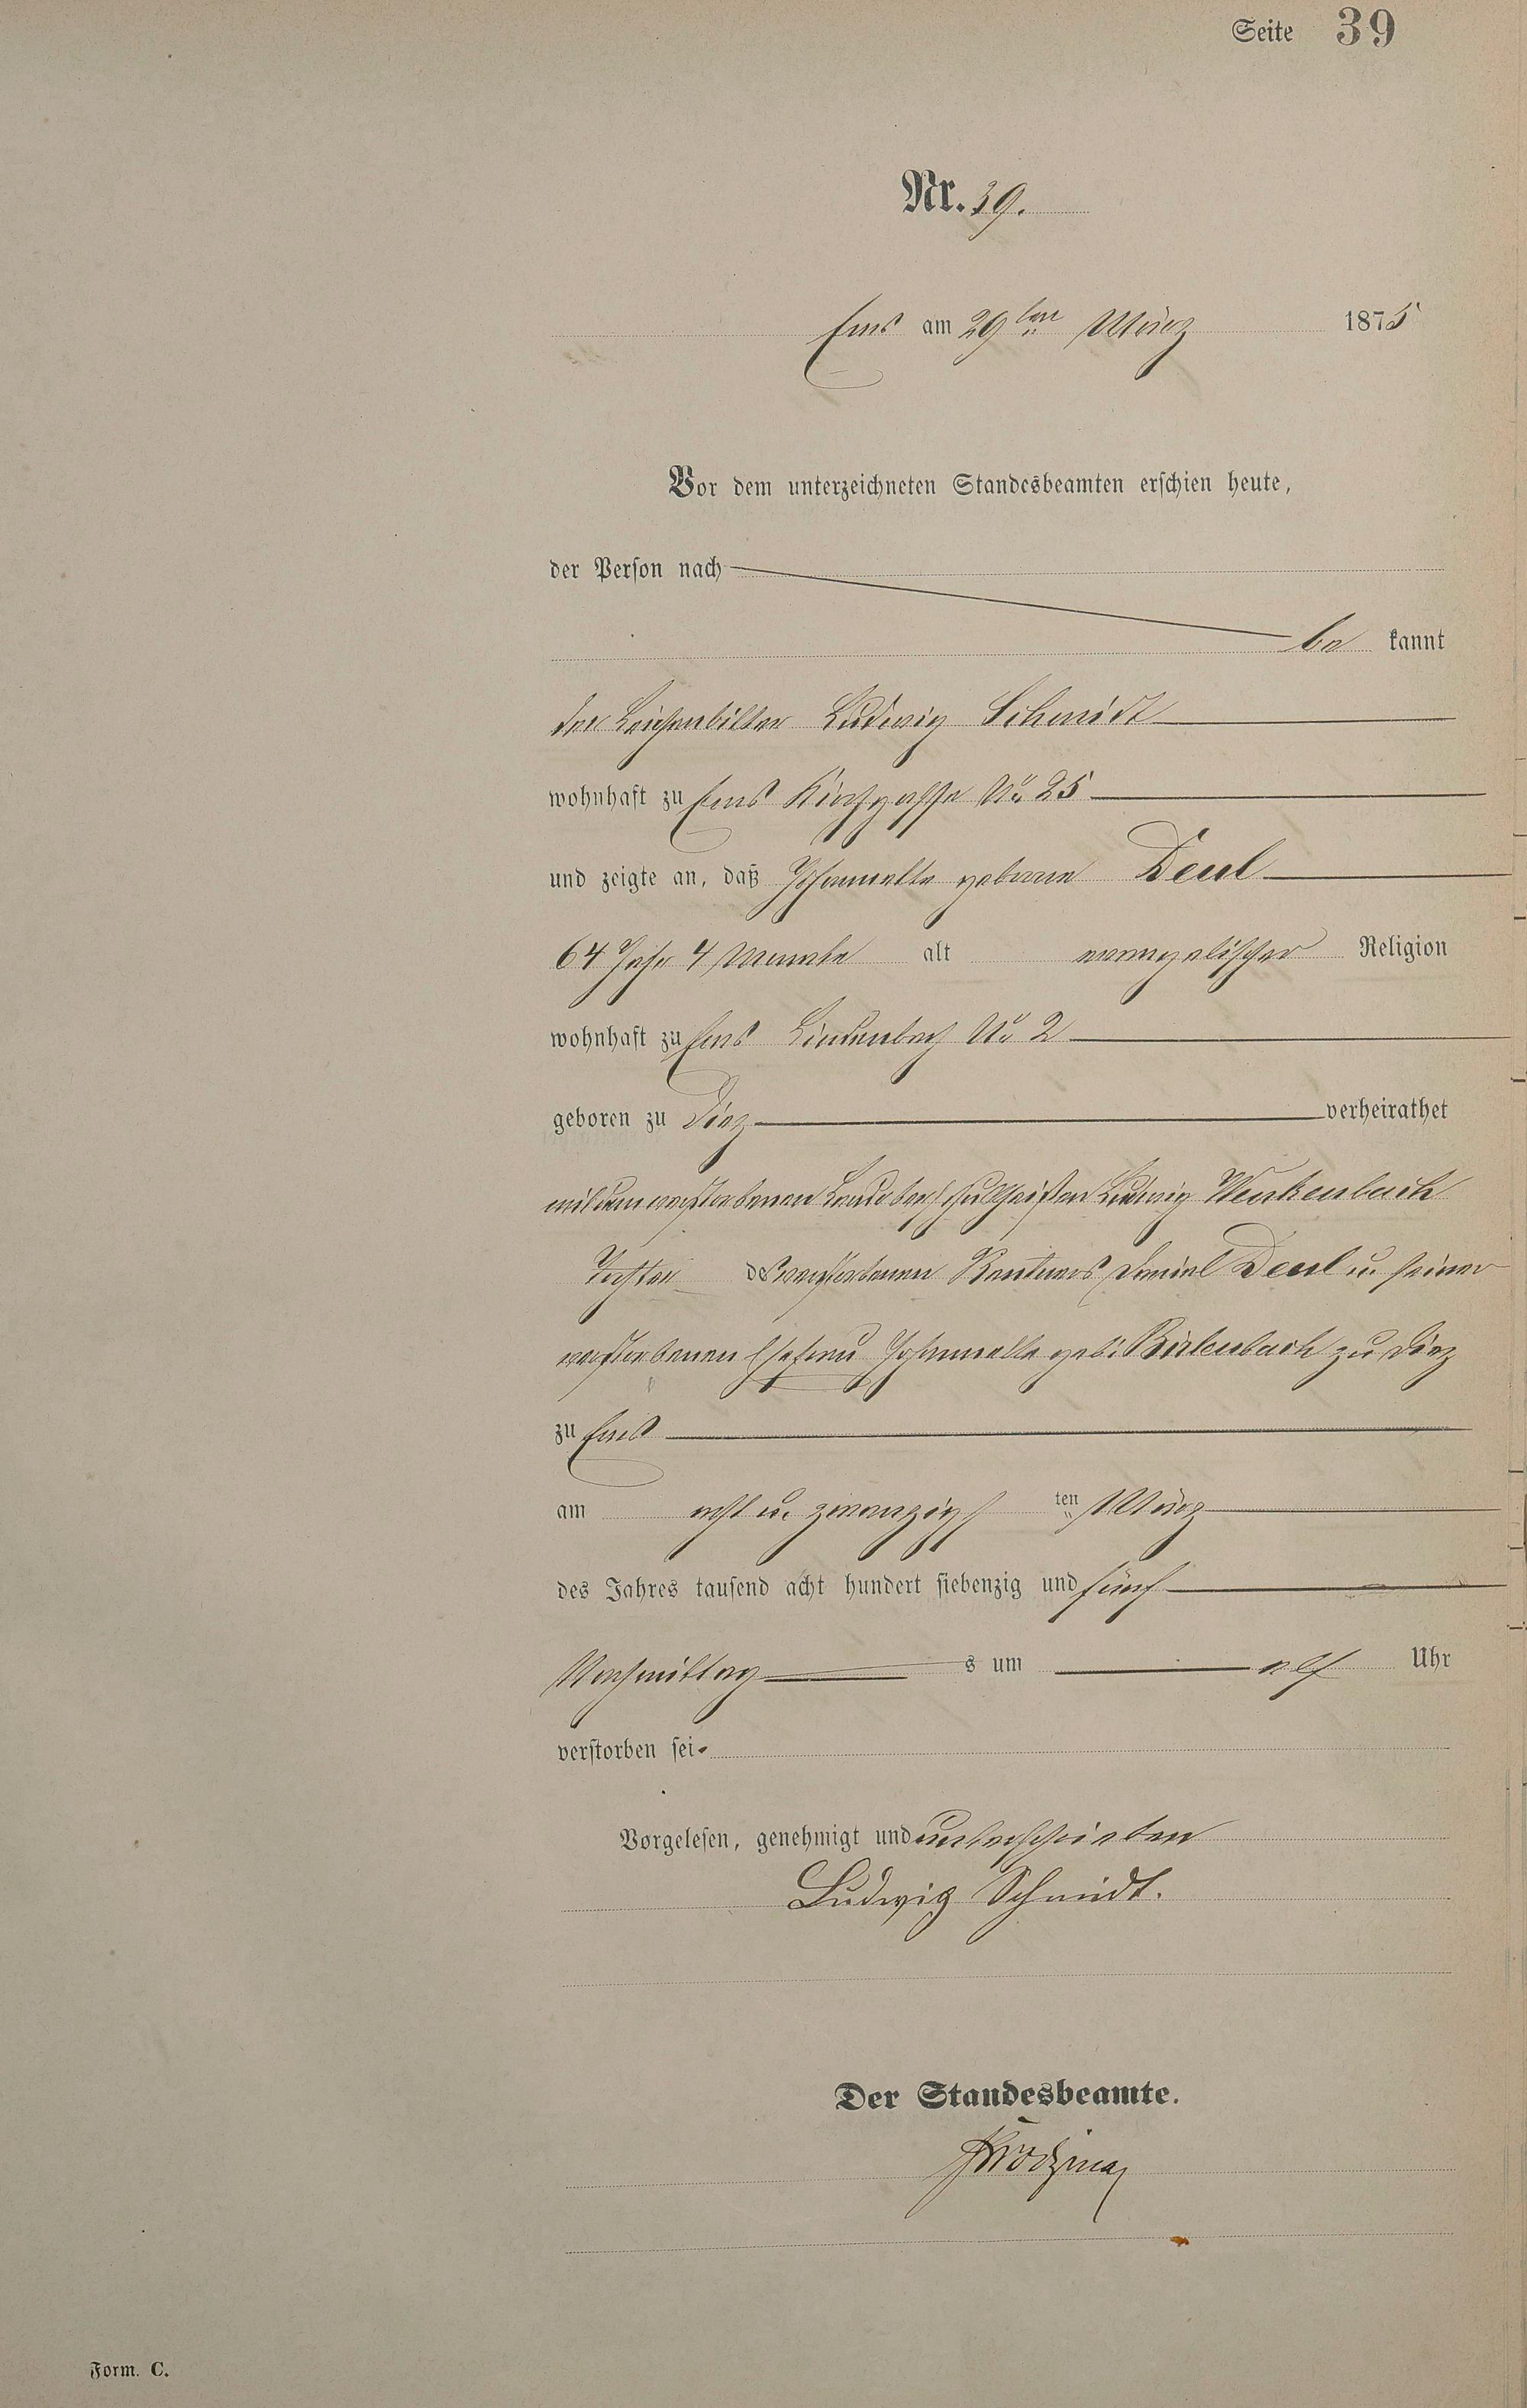 Seite 39
Nr. 39.
Ems am 29ten März 1875
Vor dem unterzeichneten Standesbeamten erschien heute,
der Person nach
be kannt
der Leichenbitter Ludwig Schmidt
wohnhaft zu Ems Kirchgasse No 25
und zeigte an, daß Johannette geborene Deul
64 Jahr 4 Monate alt evangelischer Religion
wohnhaft zu Ems Lindenbach No 2
geboren zu Diez verheirathet
mit dem verstorbenen Landoberschultheißen Ludwig Wenkenbach
Tochter des verstorbenen Rentners Daniel Deul u. seiner
verstorbenen Ehefrau Johannette geb. Birlenbach zu Diez
zu Ems
am acht u. zwanzigs ten März
des Jahres tausend acht hundert siebenzig und fünf
Nachmittag s um elf Uhr
verstorben sei.
Vorgelesen, genehmigt und unterschrieben
Ludwig Schmidt.
Der Standesbeamte.
Form. C.